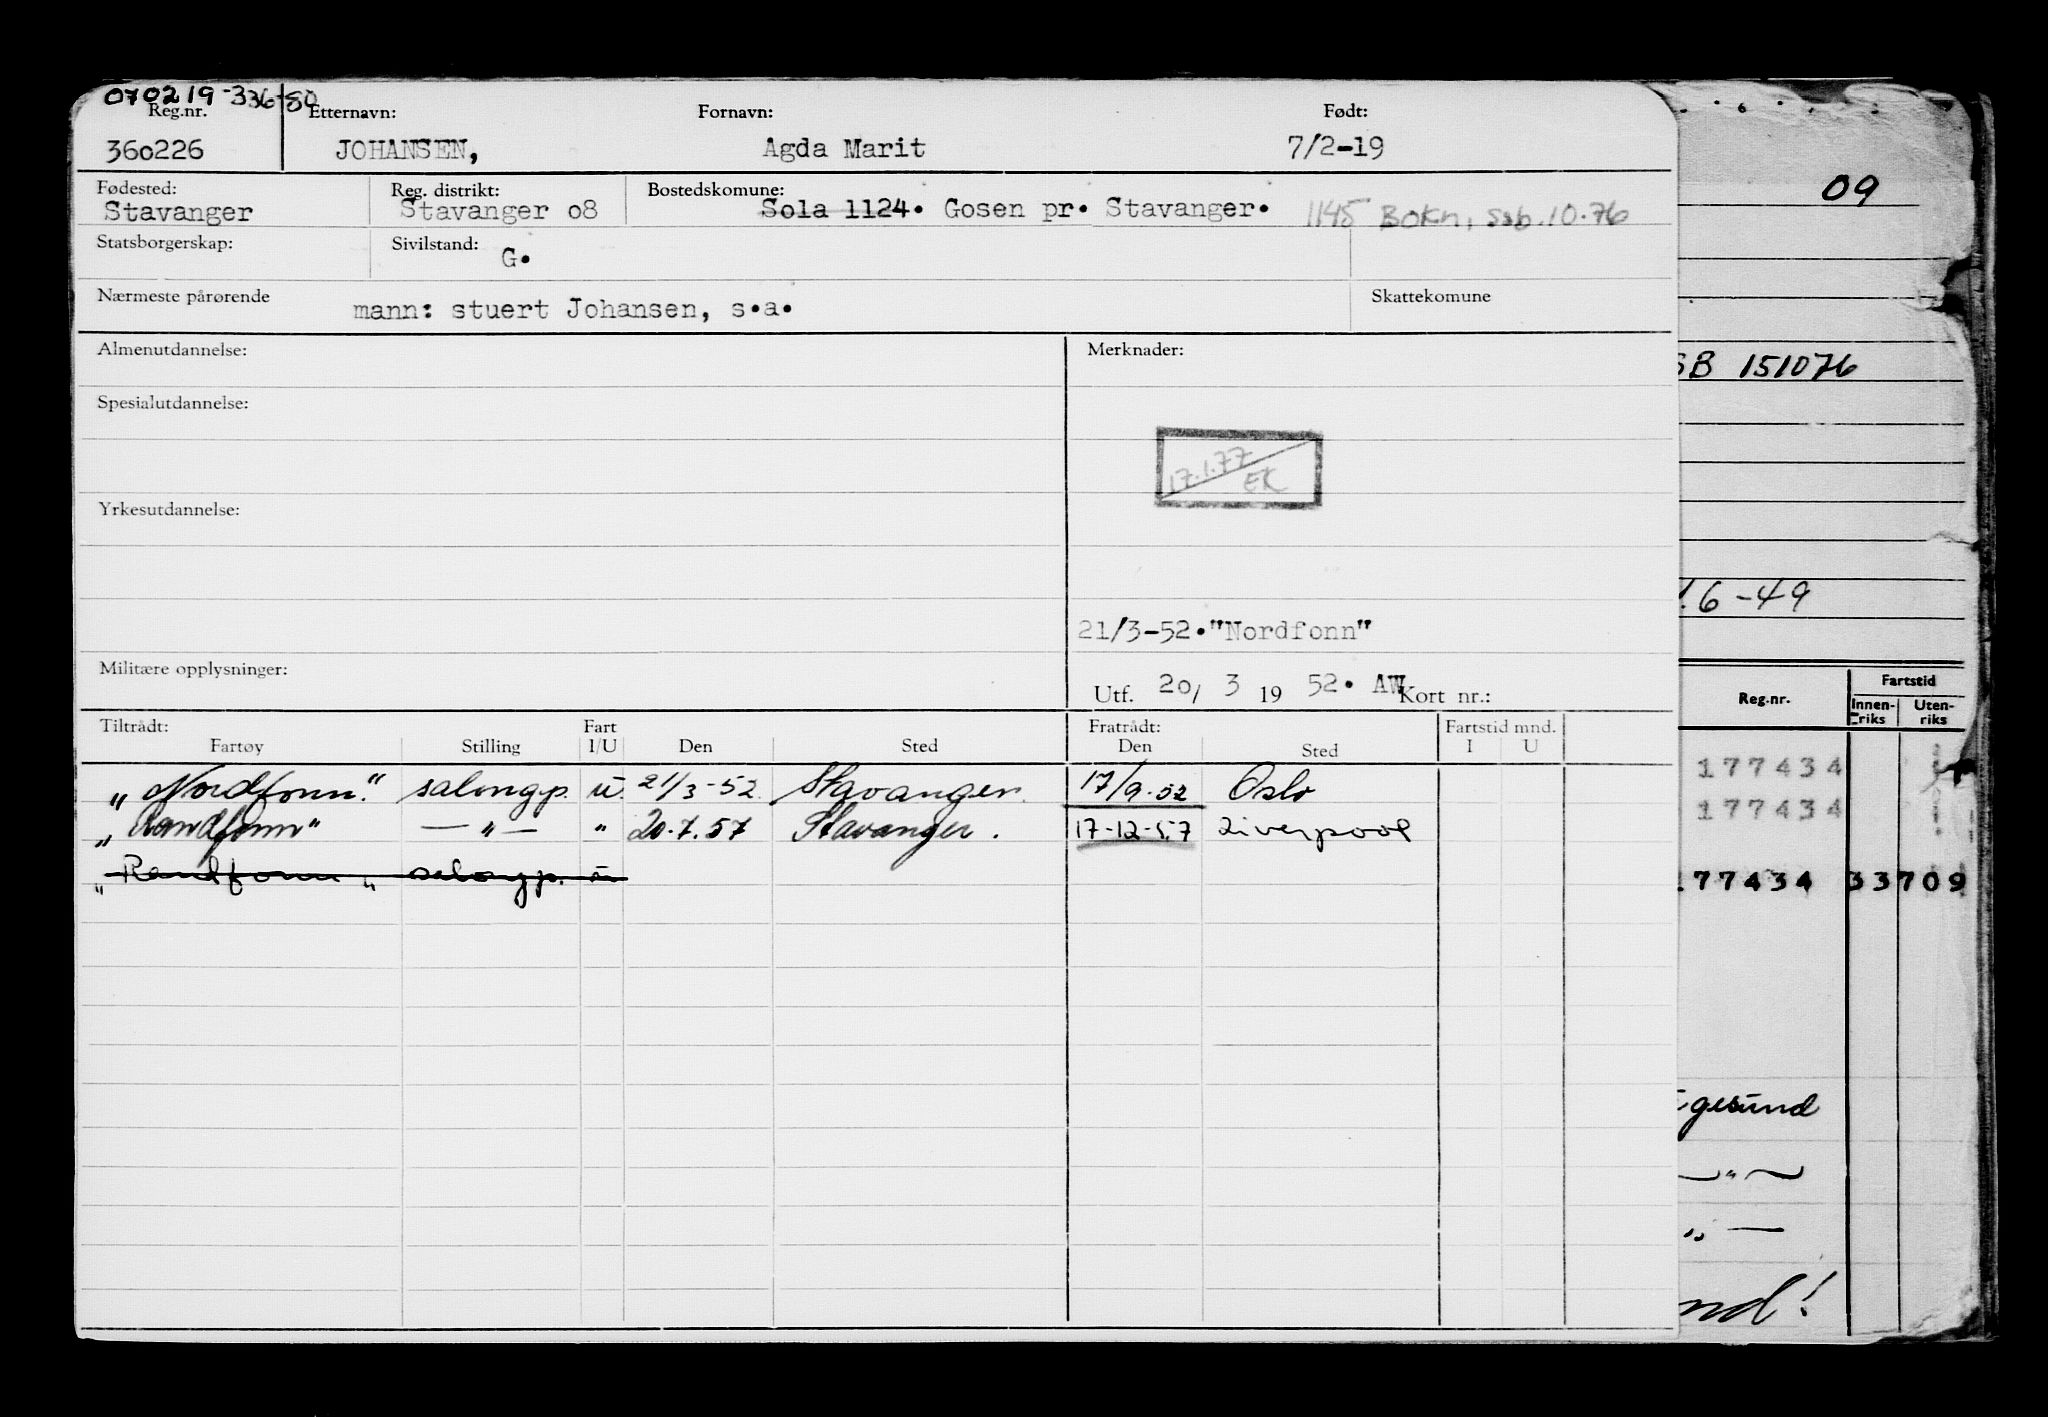 070219-33680
Reg.nr. Etternavn: Fornavn: Født:
360226 JOHANSEN, Agda Marit 7/2-19
Fødested: Reg. distrikt: Bostedskomune:
Stavanger Stavanger 08 Sola 1124. Gosen pr. Stavanger. 1145 Bokn, ssb.10.76
Statsborgerskap: Sivilstand: G.
Nærmeste pårørende mann: stuert Johansen, s.a. Skattekomune
Almenutdannelse: Merknader:
Spesialutdannelse:
17.1.77
EK
Yrkesutdannelse:
21/3-52."Nordfonn"
Militære opplysninger:
Utf. 20/ 3 19 52. AW Kort nr.:
Tiltrådt: Fart Fratrådt: Fartstid mnd.
Fartøy Stilling I/U Den Sted Den Sted I U
„Nordfonn." salongp. u. 21/3-52. Stavanger. 17/9-52 Oslo
„Randfonn" —„— „ 20.7.57 Stavanger. 17-12-57 Liverpool
„Randfonn„ salongp. u
09
SB 151076
.6-49
Reg.nr. Fartstid
Innen-riks Uten-riks
177434
177434
177434 33709
gesund
~„~
„ —
nd!